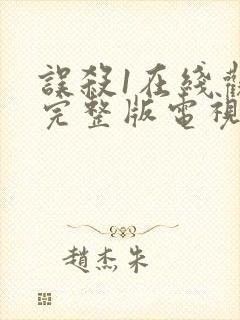 誤殺1在綫觀
完整版電視
趙杰朱